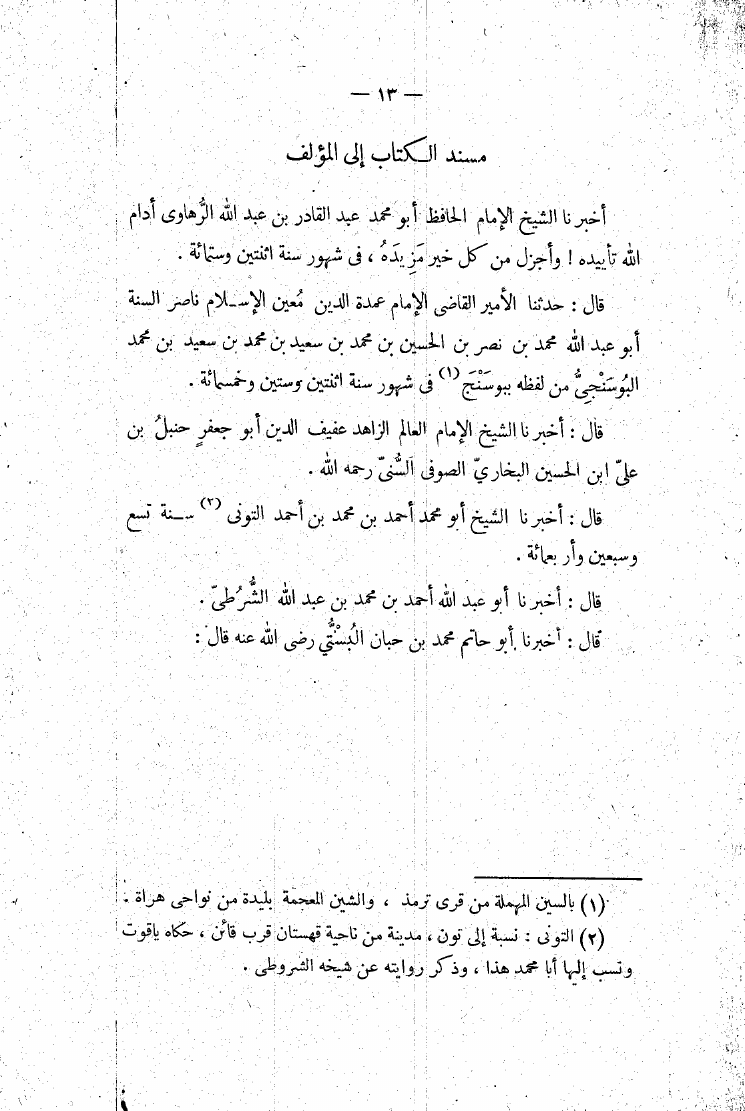 — ١٣ —
مسند الكتاب إلى المؤلف
أخبرنا الشيخ الإمام الحافظ أبو محمد عبد القادر بن عبد الله الرُّهاوى أدام
الله تأييده ! وأجزل من كل خير مَزِيدَهُ ، فى شهور سنة اثنتين وستمائة .
قال : حدثنا الأمير القاضى الإمام عمدة الدين مُعين الإسلام ناصر السنة
أبو عبد الله محمد بن نصر بن الحسين بن محمد بن سعيد بن محمد بن سعيد بن محمد
البُوسَنْجِىُّ من لفظه ببوسَنْجَ (١) فى شهور سنة اثنتين وستين وخمسمائة .
قال : أخبرنا الشيخ الإمام العالم الزاهد عفيف الدين أبو جعفرٍ حنبلُ بن
علىّ ابن الحسين البخاريّ الصوفى السُّنىّ رحمه الله .
قال : أخبرنا الشيخ أبو محمد أحمد بن محمد بن أحمد التونى (٢) سنة تسع
وسبعين وأربعمائة .
قال : أخبرنا أبو عبد الله أحمد بن محمد بن عبد الله الشُّرُطىّ .
قال : أخبرنا أبو حاتم محمد بن حبان البُسْتِّي رضى الله عنه قال :
(١) بالسين المهملة من قرى ترمذ ، والشين المعجمة بليدة من نواحى هراة .
(٢) التونى : نسبة إلى تون ، مدينة من ناحية قهستان قرب قائن ، حكاه ياقوت
ونسب إليها أبا محمد هذا ، وذكر روايته عن شيخه الشروطى .